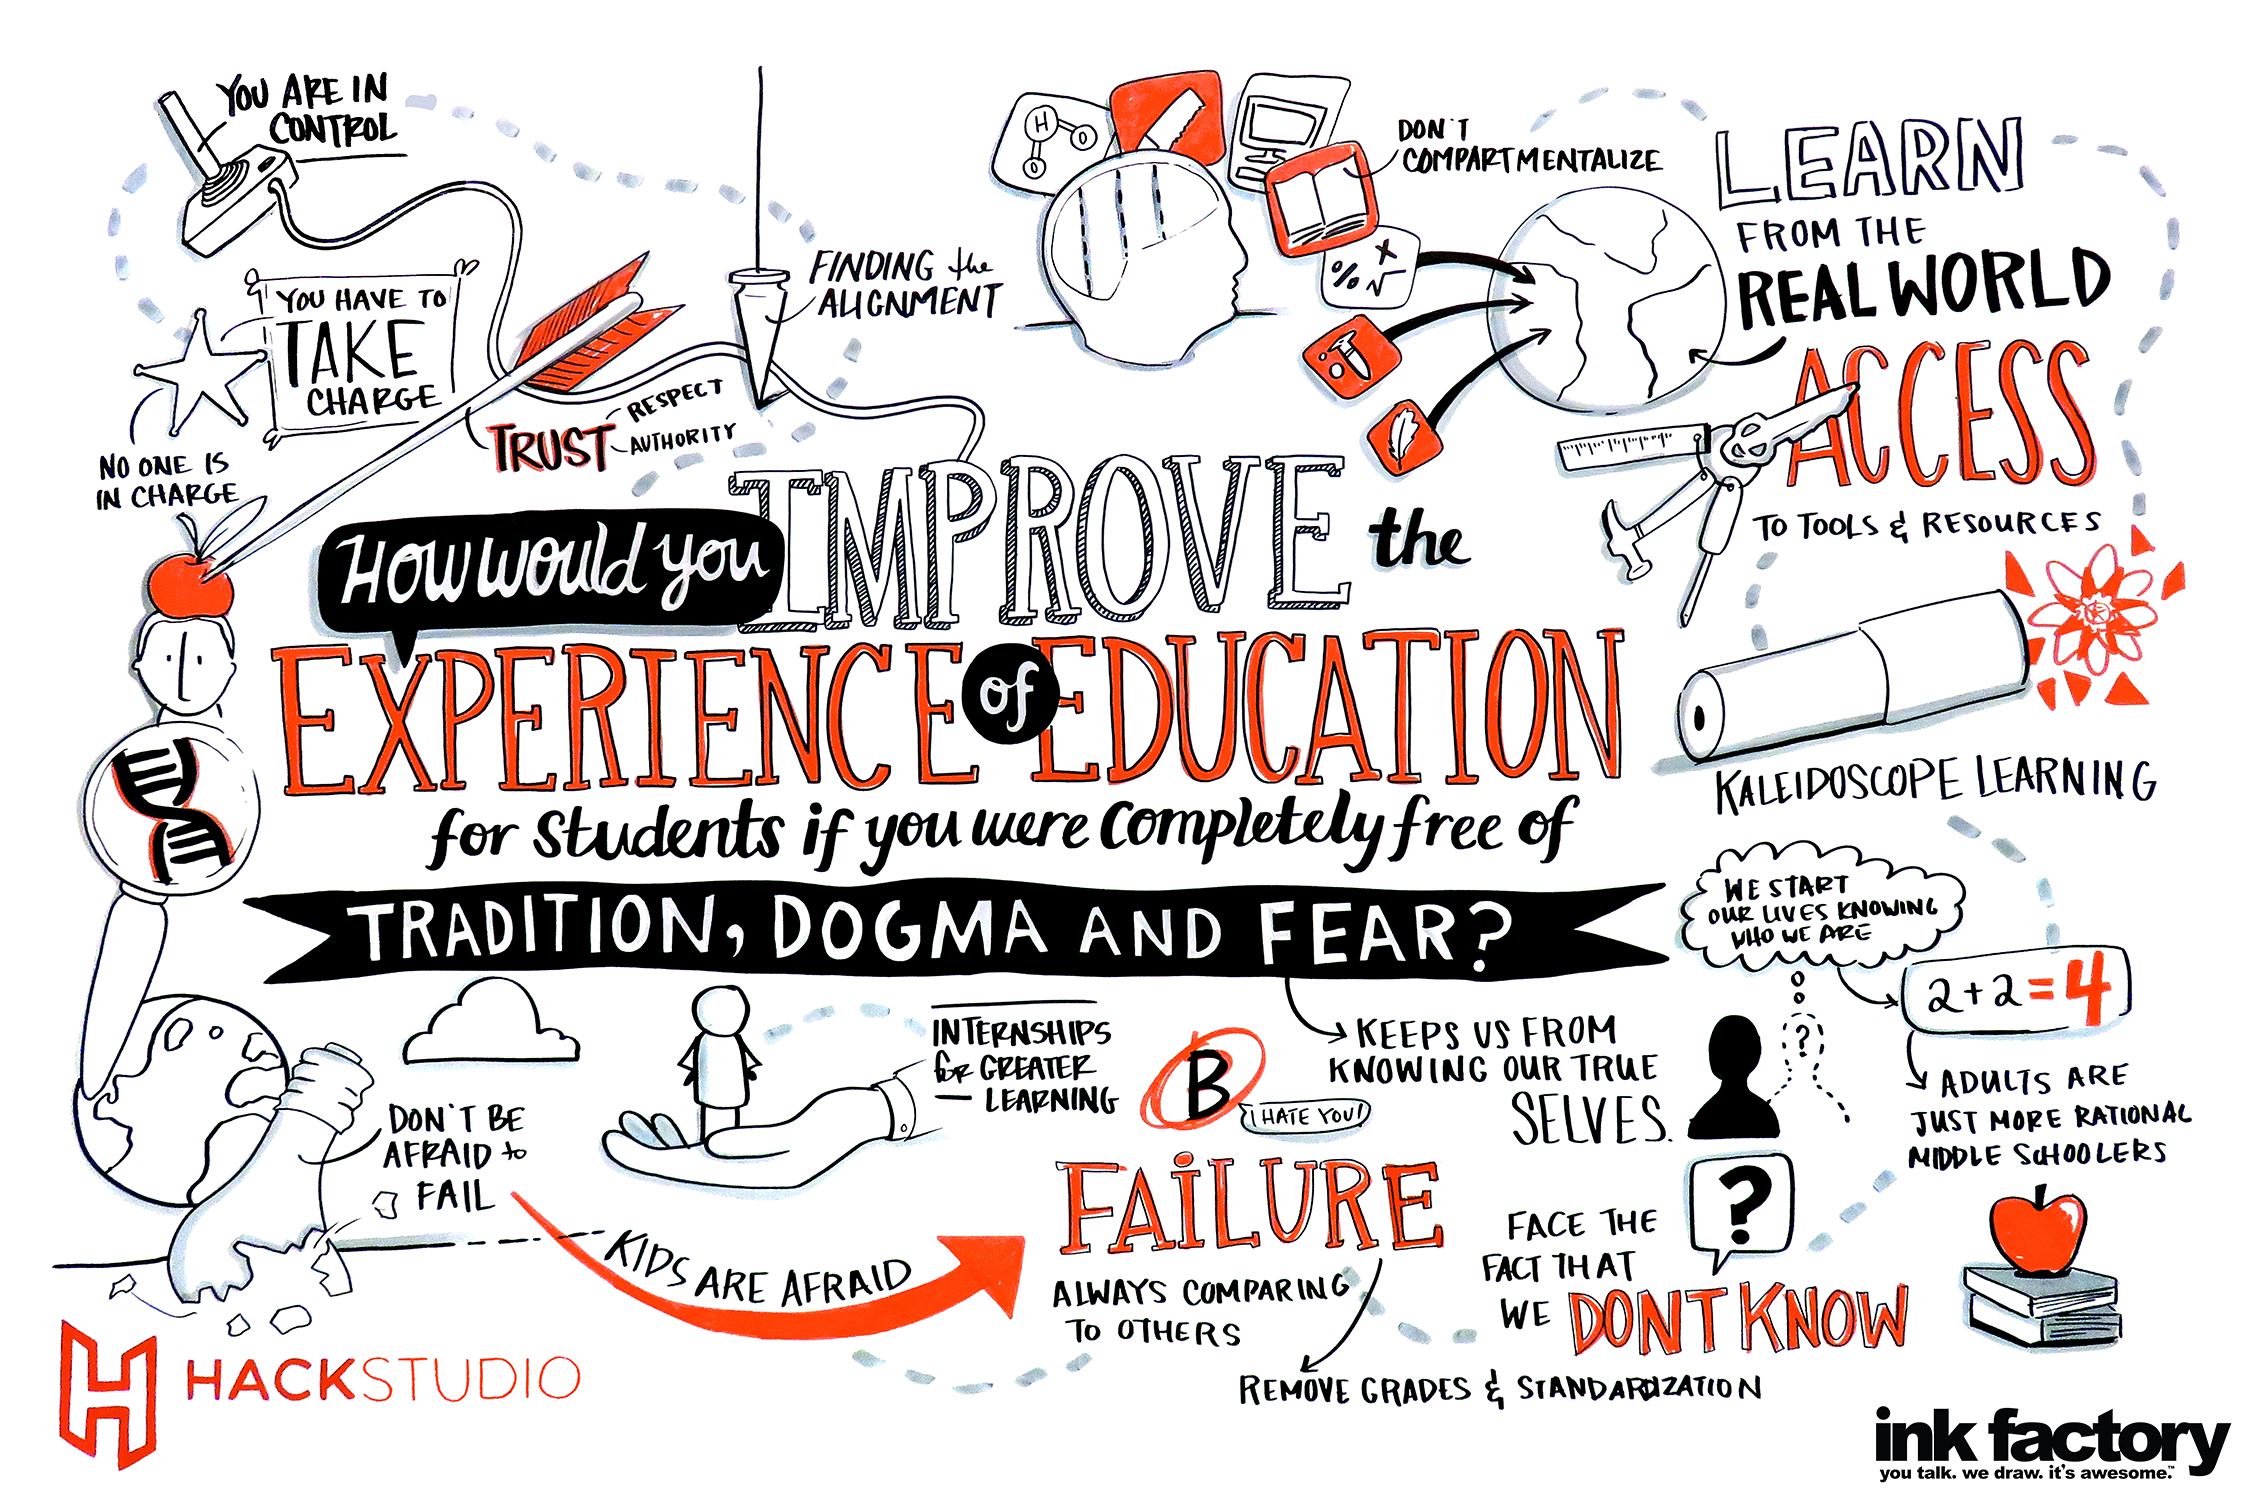 YOU ARE IN
CONTROL
YOU HAVE TO
TAKE
CHARGE
NO ONE IS
IN CHARGE
TRUST
RESPECT
AUTHORITY
FINDING the
ALIGNMENT
H
O
O
DON'T
COMPARTMENTALIZE
X
% √
LEARN
FROM THE
REAL WORLD
ACCESS
TO TOOLS & RESOURCES
KALEIDOSCOPE LEARNING
How would you
IMPROVE the
EXPERIENCE of EDUCATION
for students if you were completely free of
TRADITION, DOGMA AND FEAR?
DON'T BE
AFRAID to
FAIL
KIDS ARE AFRAID
INTERNSHIPS
for GREATER
LEARNING
B
I HATE YOU!
FAILURE
ALWAYS COMPARING
TO OTHERS
REMOVE GRADES & STANDARDIZATION
KEEPS US FROM
KNOWING OUR TRUE
SELVES.
WE START
OUR LIVES KNOWING
WHO WE ARE
2+2=4
?
ADULTS ARE
JUST MORE RATIONAL
MIDDLE SCHOOLERS
?
FACE THE
FACT THAT
WE DONT KNOW
H HACKSTUDIO
ink factory
you talk. we draw. it's awesome.™